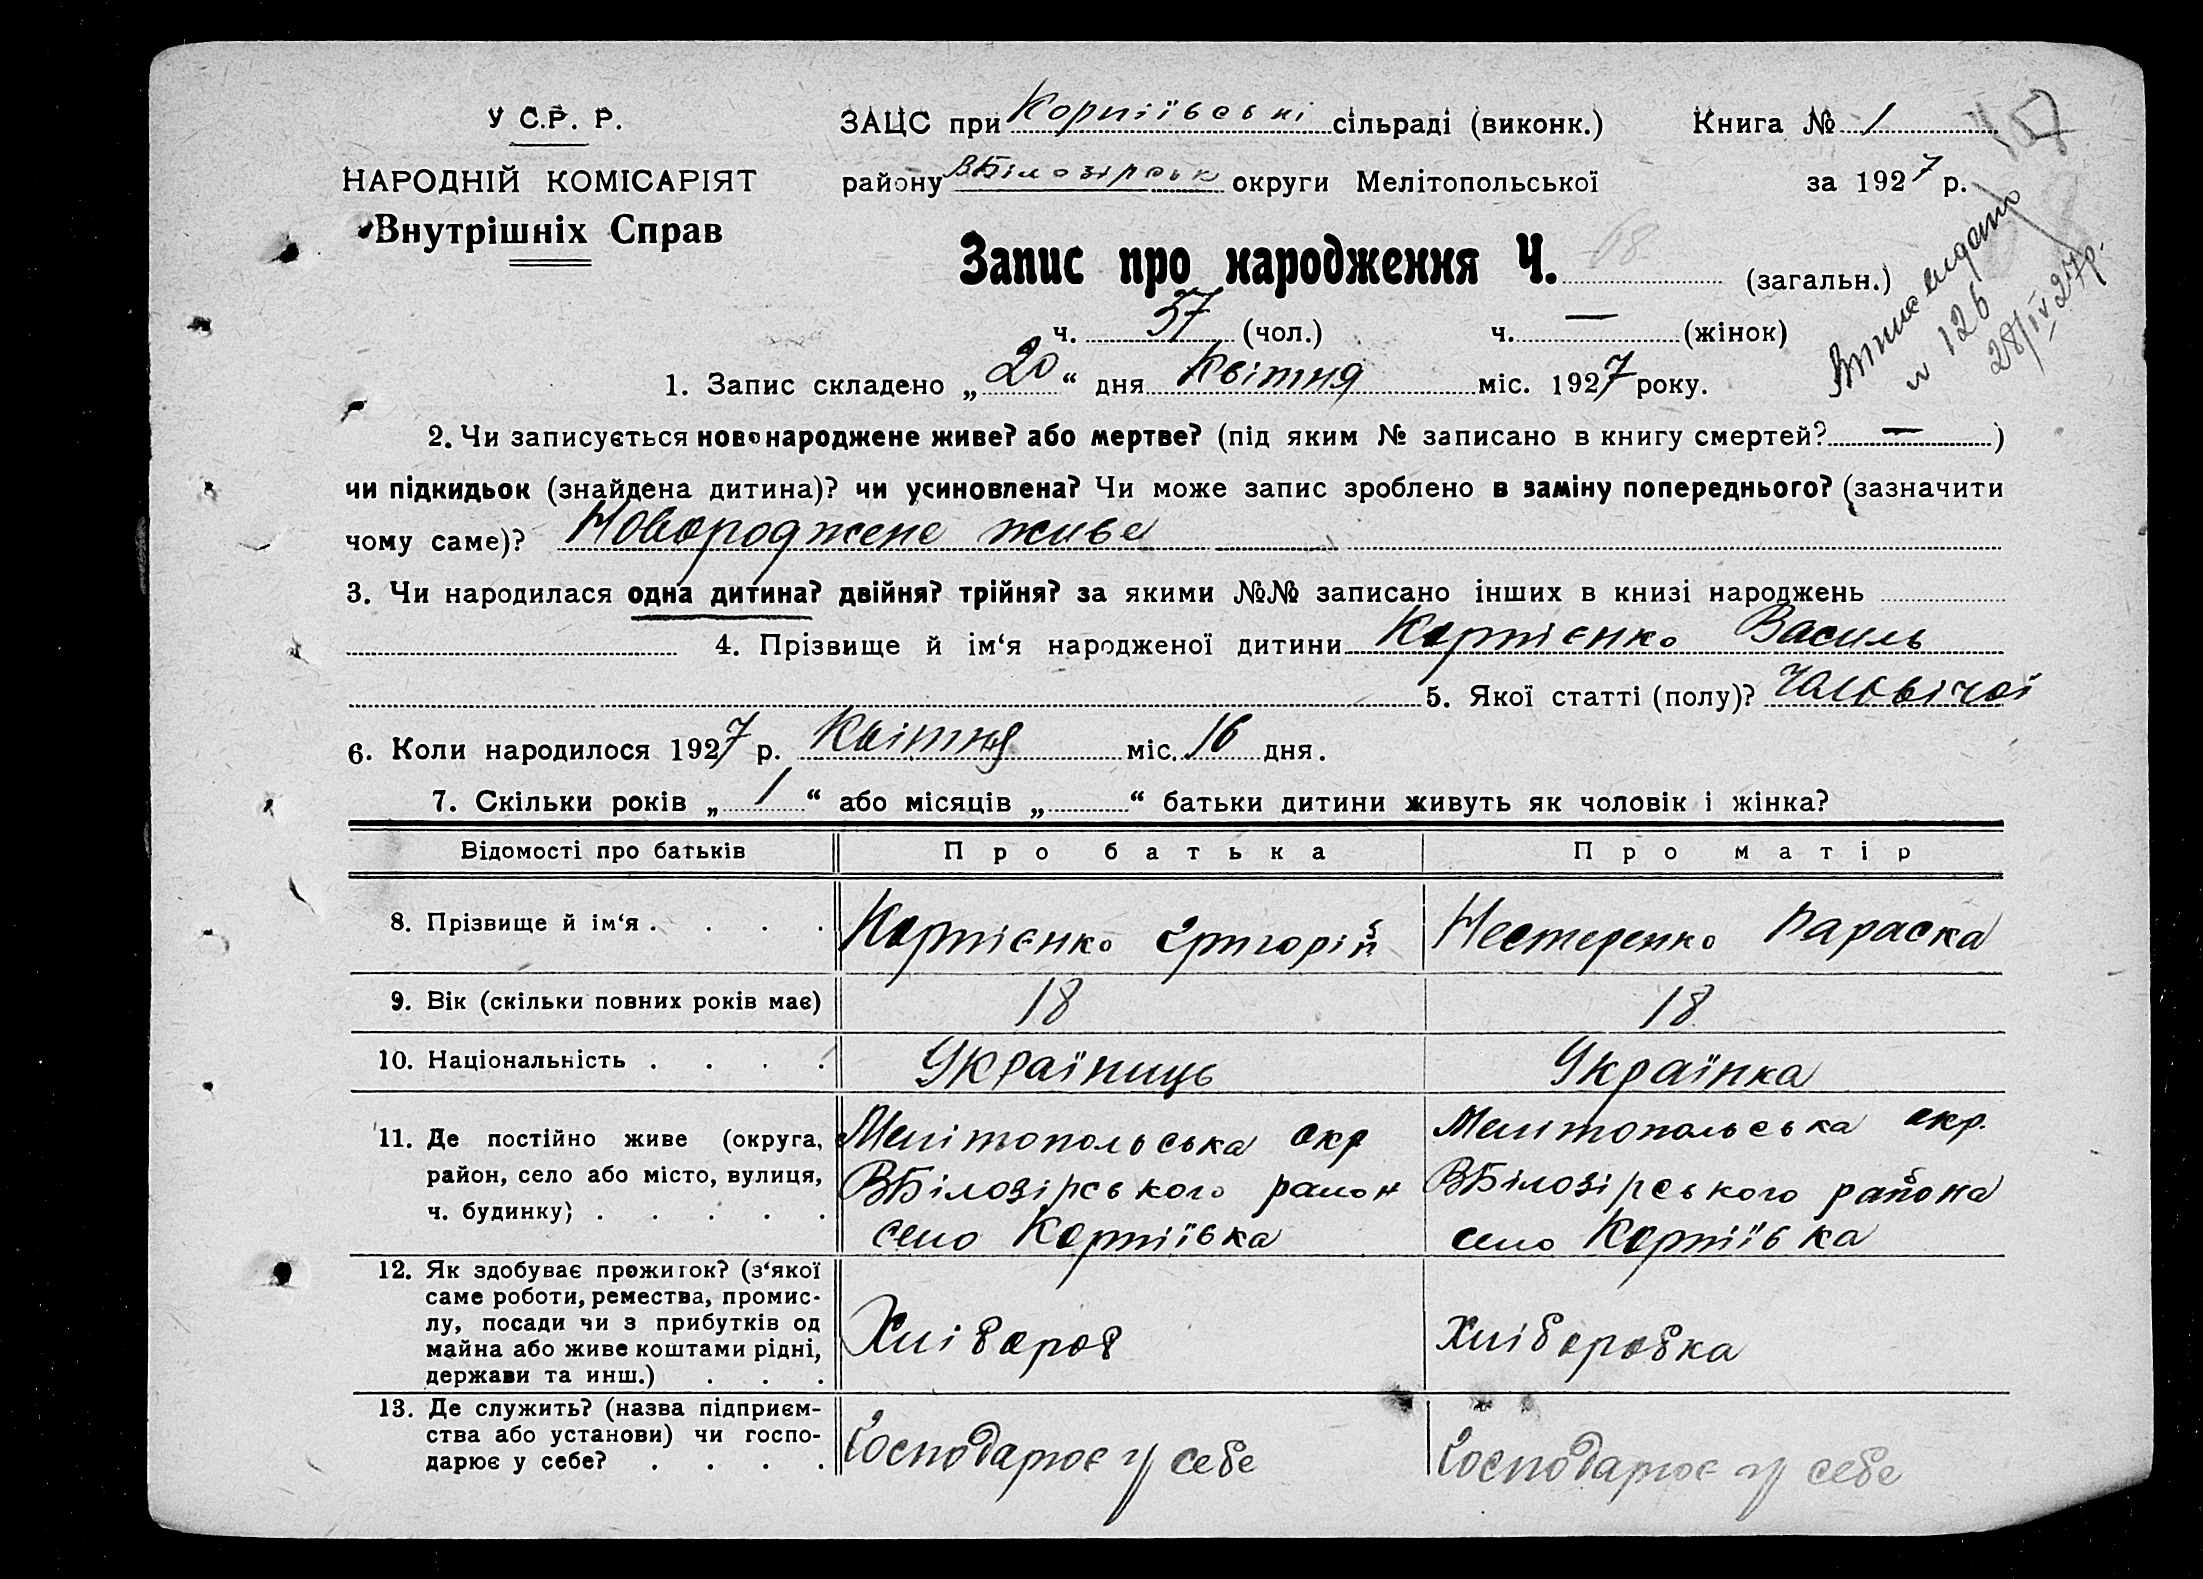 У С.Р. Р.
НАРОДНІЙ КОМІСАРІЯТ
Внутрішніх Справ
ЗАЦС при Корніївські сільраді (виконк.) Книга № 1
району ВБілозірськ округи Мелітопольської за 1927 р.
Запис про народження Ч. 68 (загальн.)
ч. 37 (чол.) ч. — (жінок)
Випис видано
н 126
28/IV 27р.
1. Запис складено „20“ дня Квітня міс. 1927 року.
2. Чи записується новонароджене живе? або мертве? (під яким № записано в книгу смертей? — )
чи підкидьок (знайдена дитина)? чи усиновлена? Чи може запис зроблено в заміну попереднього? (зазначити
чому саме)? Новороджене живе
3. Чи народилася одна дитина? двійня? трійня? за якими №№ записано інших в книзі народжень
4. Прізвище й ім‘я народженої дитини Корнієнко Василь
5. Якої статті (полу)? Чоловічої
6. Коли народилося 1927 р. Квітня міс. 16 дня.
7. Скільки років „ 1 “ або місяців „ “ батьки дитини живуть як чоловік і жінка?
Відомості про батьків Про батька Про матір
8. Прізвище й ім‘я . . . . Корнієнко Григорій Нестеренко Параска
9. Вік (скільки повних років має) 18 18
10. Національність . . . . Україниць Українка
11. Де постійно живе (округа, Мелітопольська окр Мелитопольська окр.
район, село або місто, вулиця, ВБілозірського район ВБілозірського района
ч. будинку) . . . . . село Корніївка село Корніївка
12. Як здобуває прожиток? (з‘якої
саме роботи, ремества, промис-
лу, посади чи з прибутків од Хлібороб Хліборобка
майна або живе коштами рідні,
держави та инш.) . . .
13. Де служить? (назва підприєм-
ства або установи) чи госпо- Господарює у себе Господарює у себе
дарює у себе? . . . .